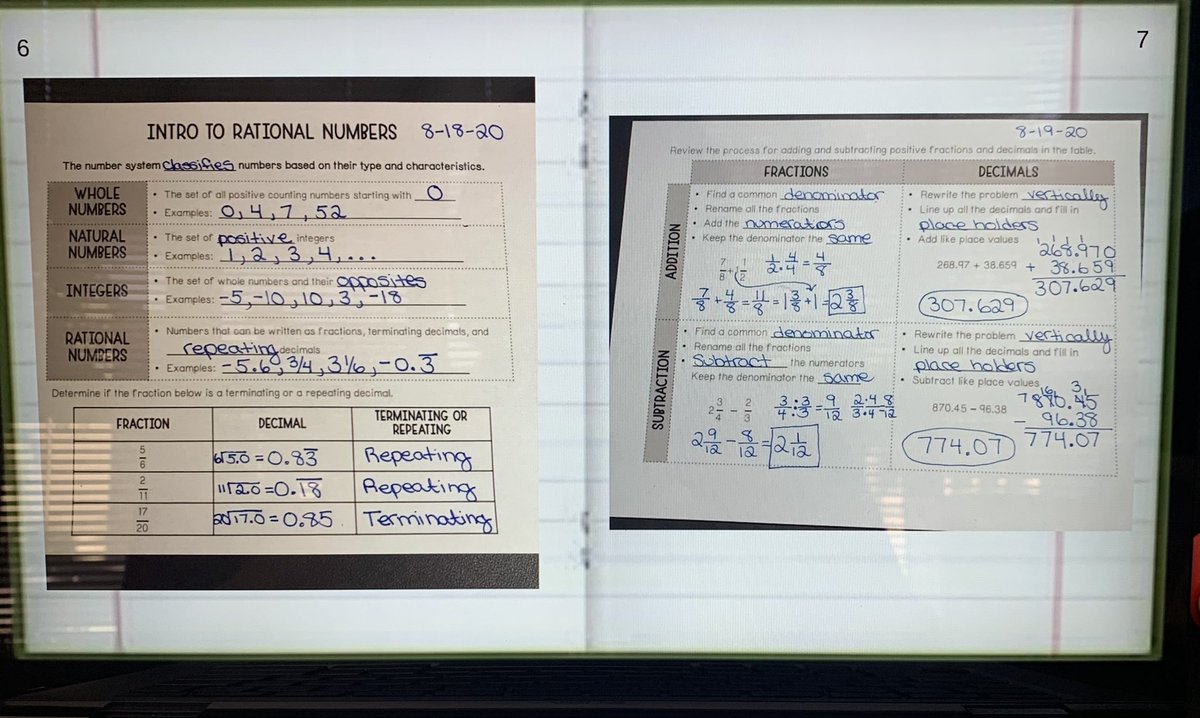 6
INTRO TO RATIONAL NUMBERS 8-18-20
The number system classifies numbers based on their type and characteristics.
WHOLE NUMBERS
• The set of all positive counting numbers starting with 0
• Examples: 0, 4, 7, 52
NATURAL NUMBERS
• The set of positive integers
• Examples: 1, 2, 3, 4, ...
INTEGERS
• The set of whole numbers and their opposites
• Examples: -5, -10, 10, 3, -18
RATIONAL NUMBERS
• Numbers that can be written as fractions, terminating decimals, and
repeating decimals
• Examples: -5.6, 3/4, 3 1/6, -0.3
Determine if the fraction below is a terminating or a repeating decimal.
FRACTION DECIMAL TERMINATING OR REPEATING
5/6 6√5.0 = 0.83̅ Repeating
2/11 11√2.0 = 0.1̅8̅ Repeating
17/20 20√17.0 = 0.85 Terminating
7
8-19-20
Review the process for adding and subtracting positive fractions and decimals in the table.
FRACTIONS DECIMALS
ADDITION
• Find a common denominator
• Rename all the fractions
• Add the numerators
• Keep the denominator the same
7/8 + 1 1/2
1/2 · 4/4 = 4/8
7/8 + 4/8 = 11/8 = 1 3/8 + 1 = 2 3/8
• Rewrite the problem vertically
• Line up all the decimals and fill in
place holders
• Add like place values
268.97 + 38.659
268.970
+ 38.659
307.629
307.629
SUBTRACTION
• Find a common denominator
• Rename all the fractions
• Subtract the numerators
Keep the denominator the same
2 3/4 - 2/3
3/4 · 3/3 = 9/12 2·4/3·4 8/12
2 9/12 - 8/12 = 2 1/12
• Rewrite the problem vertically
• Line up all the decimals and fill in
place holders
• Subtract like place values
870.45 - 96.38
870.45
- 96.38
774.07
774.07